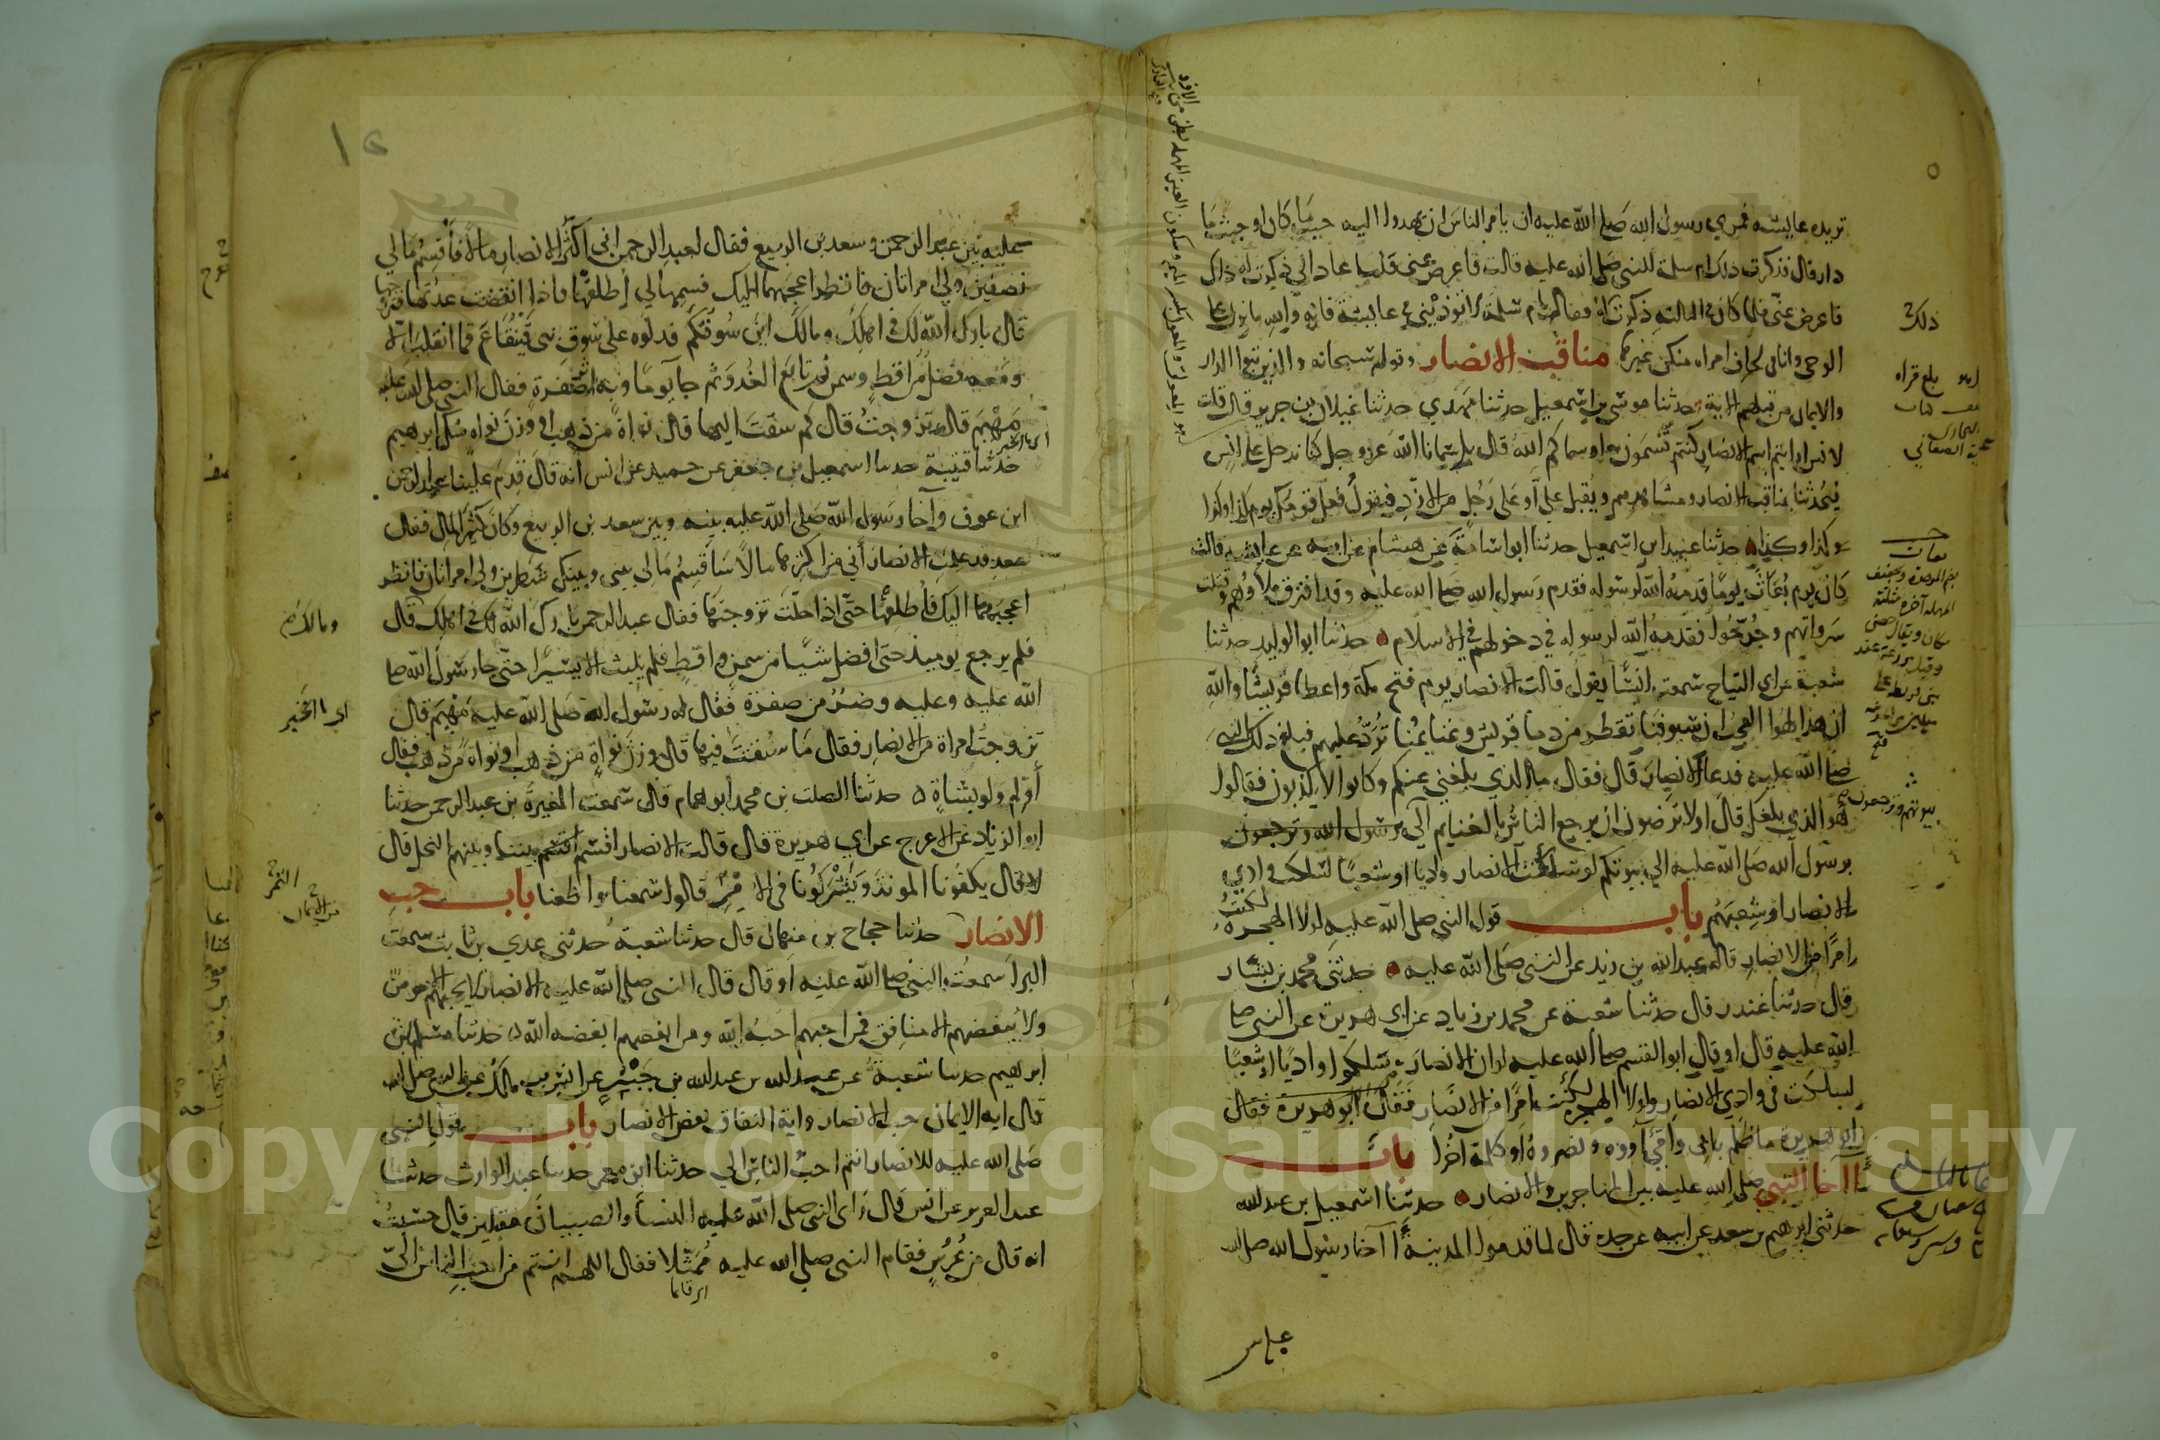 تريده عايشه فمري رسول الله صلى الله عليه ان يامر الناس ان يهدوا اليه حيث ما كان او حيث ما
دار قال فذكرت ذلك ام سلمة للنبي صلى الله عليه قالت فاعرض عني فلما عاد الي ذكرت له ذاك
فاعرض عني فلما كان في الثالثة ذكرت له فقال يا ام سلمة لا توذيني في عايشة فانه والله ما نزل علي
الوحي وانا في لحاف امراه منكن غيرها مناقب الانصار وقوله سبحانه والذين تبوا الدار
والايمان من قبلهم الاية حدثنا موسى بن اسمعيل حدثنا مهدي حدثنا غيلان بن جرير قال قلت
لانس ارايتم اسم الانصار كنتم تسمون به او سماكم الله قال بل سمانا الله عز وجل كنا ندخل على انس
فيحدثنا بمناقب الانصار ومشاهدهم ويقبل علي او على رجل من الازد فيقول فعل قومك يوم كذا وكذا
وكذا وكذا حدثنا عبيد ابن اسمعيل حدثنا ابو اسامة عن هشام عن ابيه عن عايشه قالت
كان يوم بعاث يوما قدمه الله لرسوله فقدم رسول الله صلى الله عليه وقد افترق ملاوهم وقتلت
سرواتهم وجرحوا فقدمه الله لرسوله في دخولهم في الاسلام حدثنا ابو الوليد حدثنا
شعبة عن ابي التياح سمعت انسا يقول قالت الانصار يوم فتح مكة واعطا قريشا والله
ان هذا لهوا العجب ان سيوفنا تقطر من دما قريش وغنايمنا ترد عليهم فبلغ ذلك النبي
صلى الله عليه فدعا الانصار قال فقال ما الذي بلغني عنكم وكانوا لا يكذبون فقالوا
هو الذي بلغك قال اولا ترضون ان يرجع الناس بالغنايم الي بيوتهم وترجعون
برسول الله صلى الله عليه الي بيوتكم لو سلكت الانصار واديا او شعبا لسلكت وادي
الانصار او شعبهم باب قول النبي صلى الله عليه لولا الهجرة لكنت
امرا من الانصار قاله عبد الله بن زيد عن النبي صلى الله عليه حدثني محمد بن بشار
قال حدثنا غندر قال حدثنا شعبة عن محمد بن زياد عن ابي هريرة عن النبي صلى
الله عليه قال او قال ابو القسم صلى الله عليه لو ان الانصار سلكوا واديا او شعبا
لسلكت في وادي الانصار ولولا الهجره لكنت امرا من الانصار فقال ابو هريرة فقال
ابو هريرة ما ظلم بابي وامي آووه ونصروه او كلمة اخرا باب
اخا النبي صلى الله عليه بين المهاجرين والانصار حدثنا اسمعيل بن عبد الله
حدثني ابرهيم بن سعد عن ابيه عن جده قال لما قدموا المدينة آخا رسول الله صلى الله
ذلك
بلغ قراه
بعاث
بضم الموحدة وتخفيف
المهملة آخره مثلثة
عليه بين عبد الرحمن وسعد بن الربيع فقال لعبد الرحمن اني اكثر الانصار مالا فاقسم مالي
نصفين ولي امراتان فانظر اعجبهما اليك فسمها لي اطلقها فاذا انقضت عدتها فتزوجها
قال بارك الله لك في اهلك ومالك اين سوقكم فدلوه على سوق بني قينقاع فما انقلب الا
ومعه فضل من اقط وسمن ثم تابع الغدو ثم جا يوما وبه اثر صفرة فقال النبي صلى الله عليه
مهيم قال تزوجت قال كم سقت اليها قال نواة من ذهب او وزن نواه شك ابرهيم
حدثنا قتيبة حدثنا اسمعيل بن جعفر عن حميد عن انس انه قال قدم علينا عبد الرحمن
ابن عوف وآخا رسول الله صلى الله عليه بينه وبين سعد بن الربيع وكان كثير المال فقال
سعد قد علمت الانصار أني من اكثرها مالا ساقسم مالي بيني وبينك شطرين ولي امراتان فانظر
اعجبهما اليك فاطلقها حتى اذا حلت تزوجتها فقال عبد الرحمن بارك الله لك في اهلك قال
فلم يرجع يوميذ حتى افضل شيا من سمن واقط فلم يلبث الا يسيرا حتى جا رسول الله صلى
الله عليه وعليه وضر من صفرة فقال له رسول الله صلى الله عليه مهيم قال
تزوجت امراة من الانصار فقال ما سقت فيها قال وزن نواة من ذهب او نواة من ذهب فقال
أولم ولو بشاة حدثنا الصلت بن محمد ابو همام قال سمعت المغيرة بن عبد الرحمن حدثنا
ابو الزناد عن الاعرج عن ابي هريرة قال قالت الانصار اقسم بيننا وبينهم النخل قال
لا قال يكفونا المونة ويشركونا في الامر قالوا سمعنا واطعنا باب حب
الانصار حدثنا حجاج بن منهال قال حدثنا شعبة حدثني عدي بن ثابت سمعت
البرا سمعت النبي صلى الله عليه او قال قال النبي صلى الله عليه الانصار لا يحبهم الا مومن
ولا يبغضهم الا منافق فمن احبهم احبه الله ومن ابغضهم ابغضه الله حدثنا مسلم بن
ابرهيم حدثنا شعبة عن عبد الله بن عبد الله بن جبر عن انس بن مالك عن النبي صلى الله
قال اية الايمان حب الانصار واية النفاق بغض الانصار باب قول النبي
صلى الله عليه للانصار انتم احب الناس الي حدثنا ابو معمر حدثنا عبد الوارث حدثنا
عبد العزيز عن انس قال راى النبي صلى الله عليه النسا والصبيان مقبلين قال حسبت
انه قال من عرس فقام النبي صلى الله عليه ممثلا فقال اللهم انتم من احب الناس الي
ومالك
التمر
Copyright © King Saud University
1957